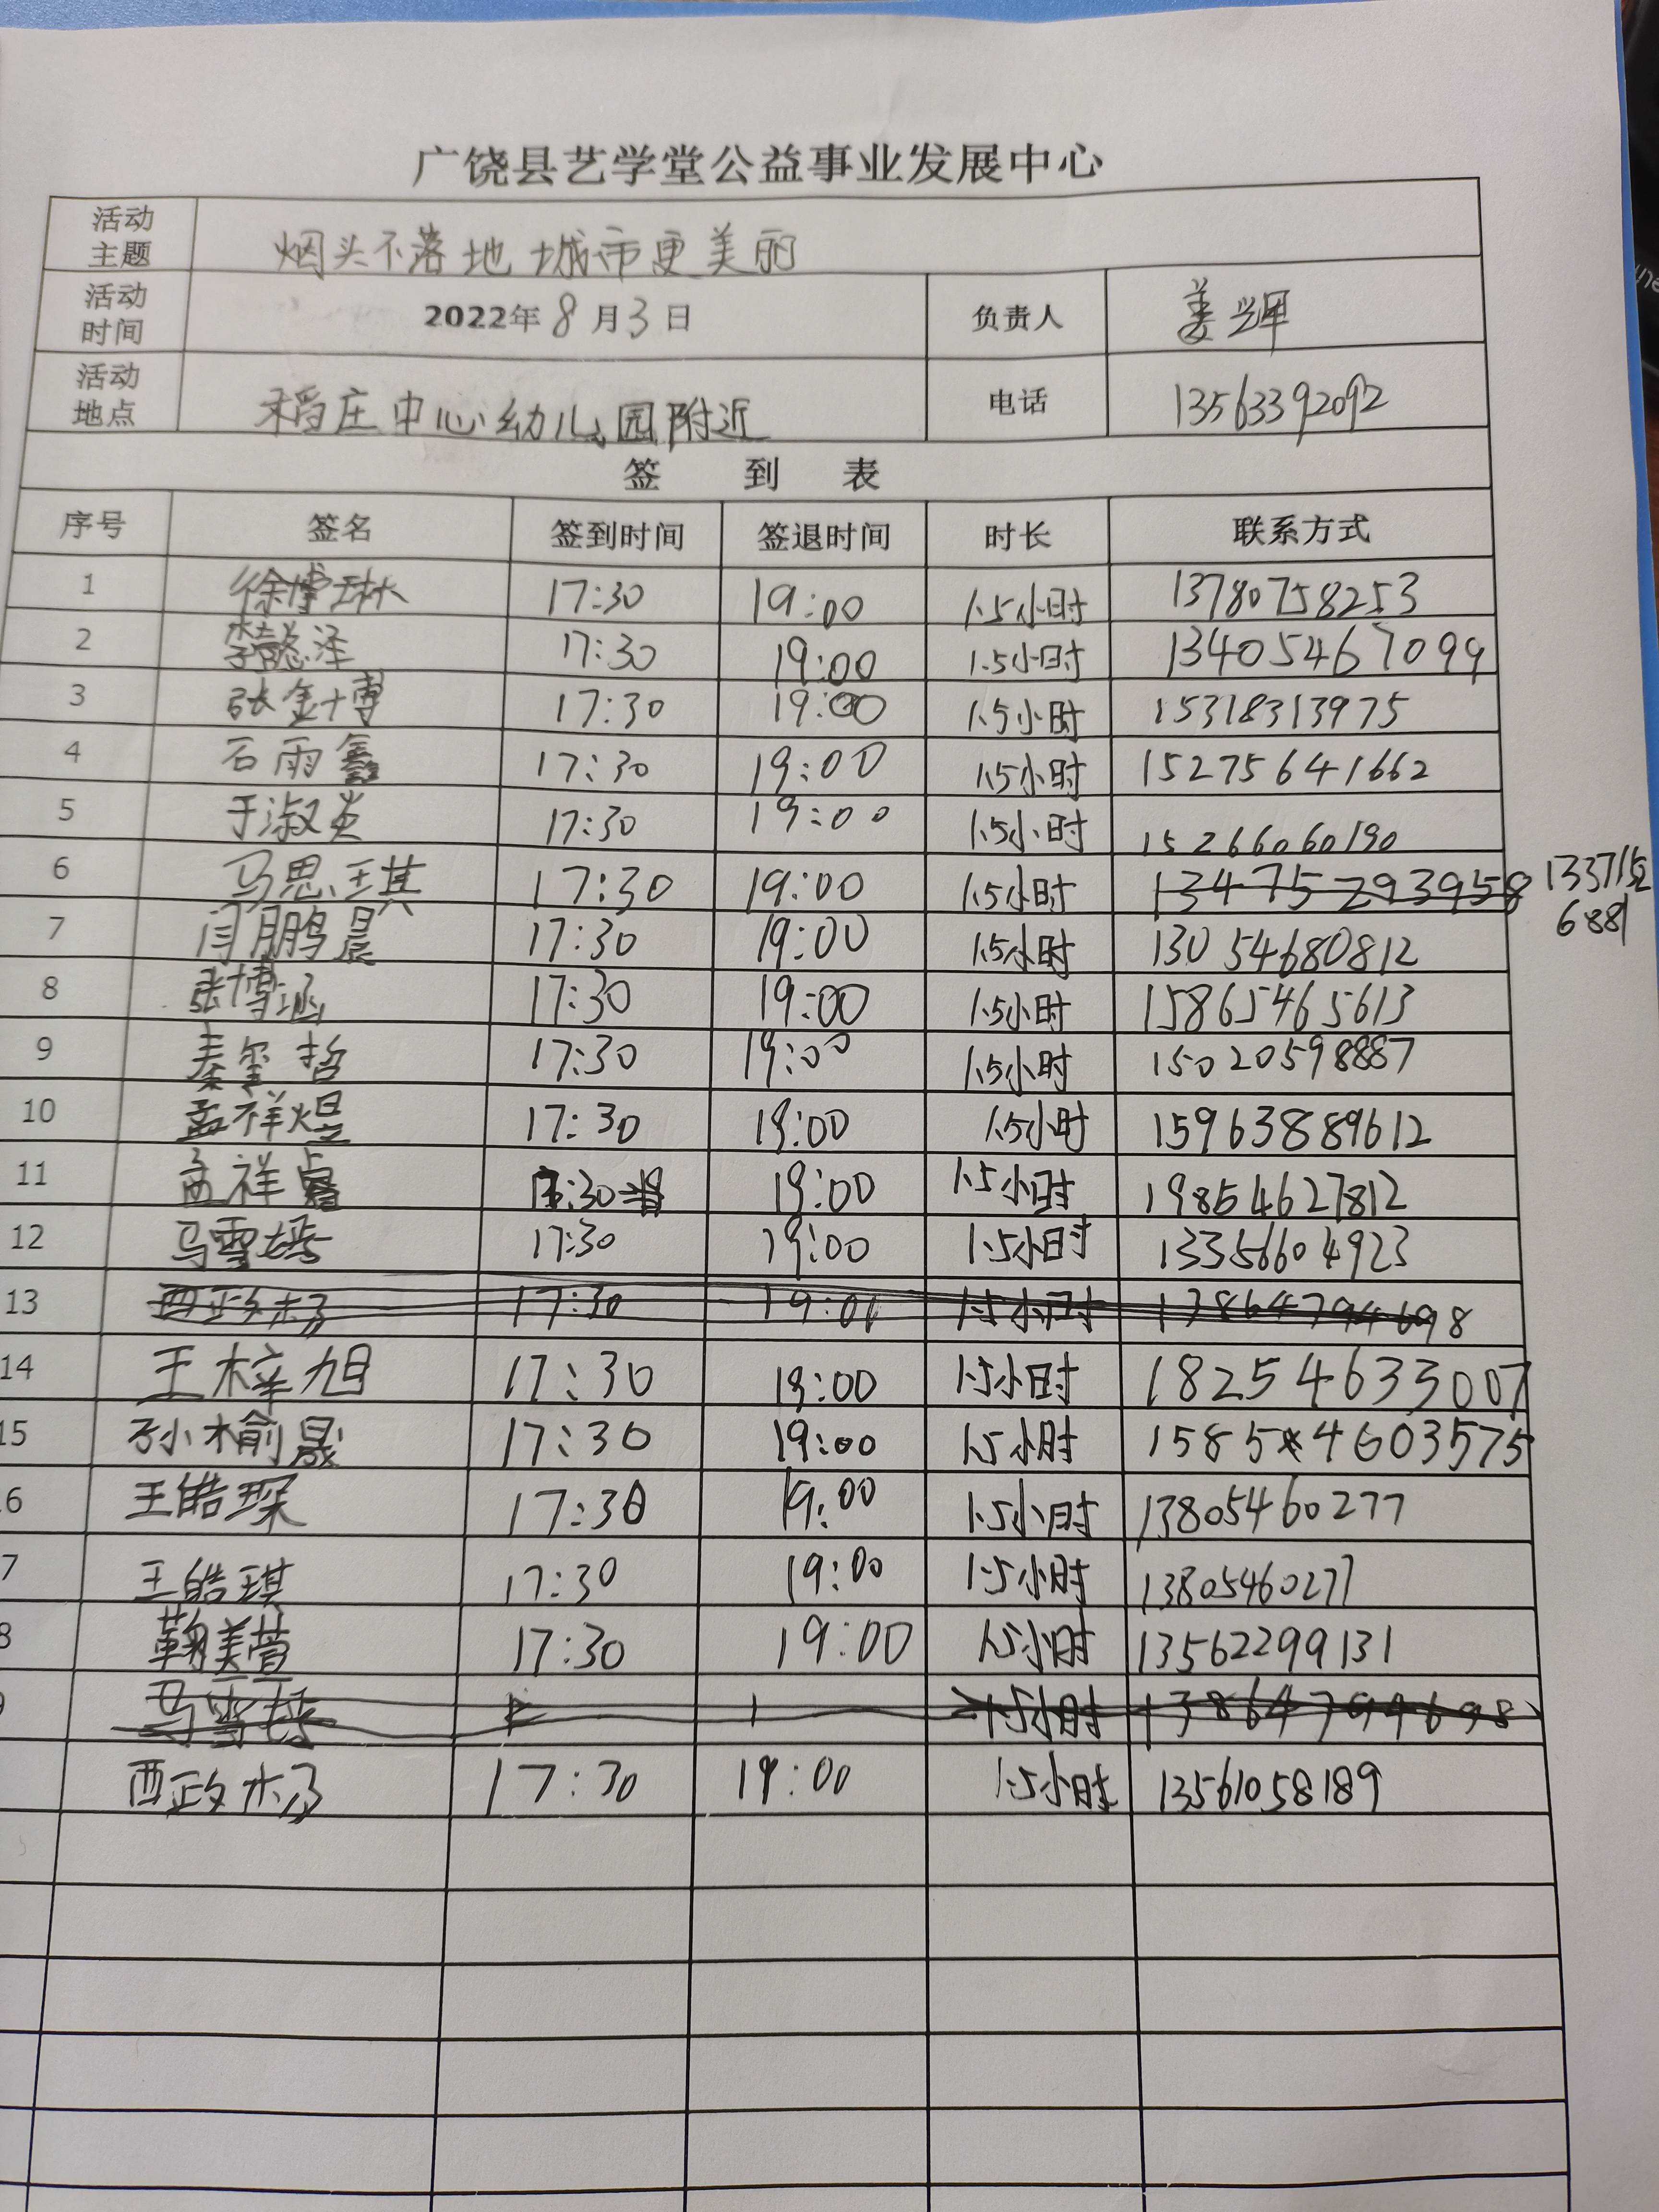 广饶县艺学堂公益事业发展中心
活动主题 烟头不落地 城市更美丽
活动时间 2022年8月3日 负责人 姜辉
活动地点 稻庄中心幼儿园附近 电话 13563392092
签 到 表
序号 签名 签到时间 签退时间 时长 联系方式
1 徐博琳 17:30 19:00 1.5小时 13780758253
2 李懿泽 17:30 19:00 1.5小时 13405467099
3 张金博 17:30 19:00 1.5小时 15318313975
4 石雨鑫 17:30 19:00 1.5小时 15275641662
5 于淑炎 17:30 19:00 1.5小时 15266060190
6 马思琪 17:30 19:00 1.5小时 13475293958 133715
6881
7 闫鹏晨 17:30 19:00 1.5小时 13054680812
8 张博涵 17:30 19:00 1.5小时 15865465613
9 秦玺哲 17:30 19:00 1.5小时 15020598887
10 孟祥煜 17:30 19:00 1.5小时 15963889612
11 孟祥睿 17:30 19:00 1.5小时 19854627812
12 马雪 17:30 19:00 1.5小时 13356604923
13 西政 17:30 19:00 1.5小时 13864794698
14 王梓旭 17:30 19:00 1.5小时 18254633007
15 孙榆晟 17:30 19:00 1.5小时 15854603575
6 王皓琛 17:30 19:00 1.5小时 13805460277
7 王皓琪 17:30 19:00 1.5小时 13805460277
8 鞠美萱 17:30 19:00 1.5小时 13562299131
9 马雪 1 1.5小时 13864794698
西政 17:30 19:00 1.5小时 13561058189